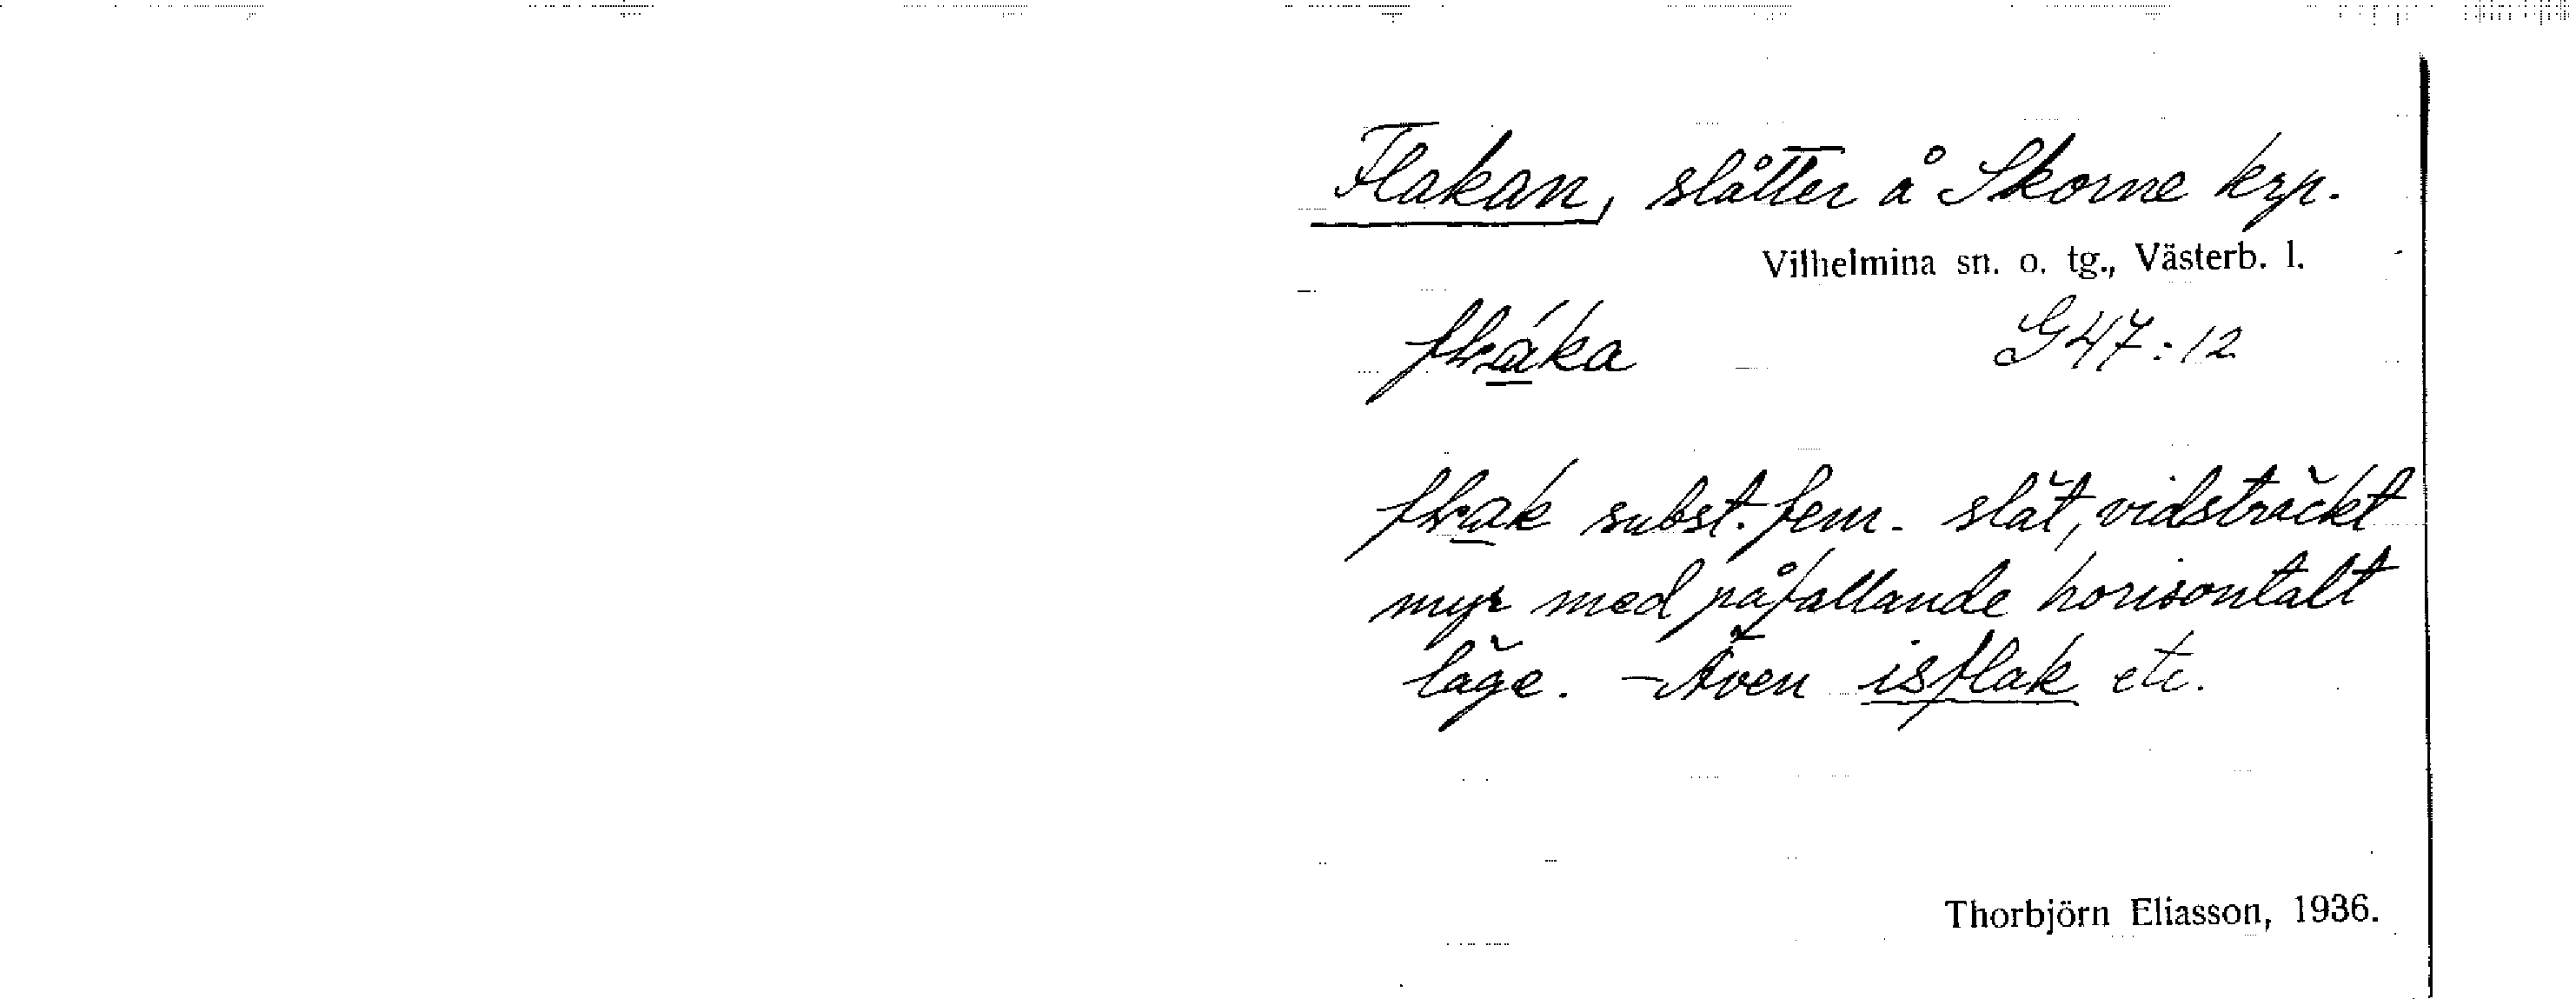 Flakan, slåtter å Skorne krp.
Vilhelmina sn. o. tg., Västerb. l.
flráka G47:12
flrak subst. fem. slät, vidsträckt
myr med påfallande horisontalt
läge. - Även isflak etc.
Thorbjörn Eliasson, 1936.